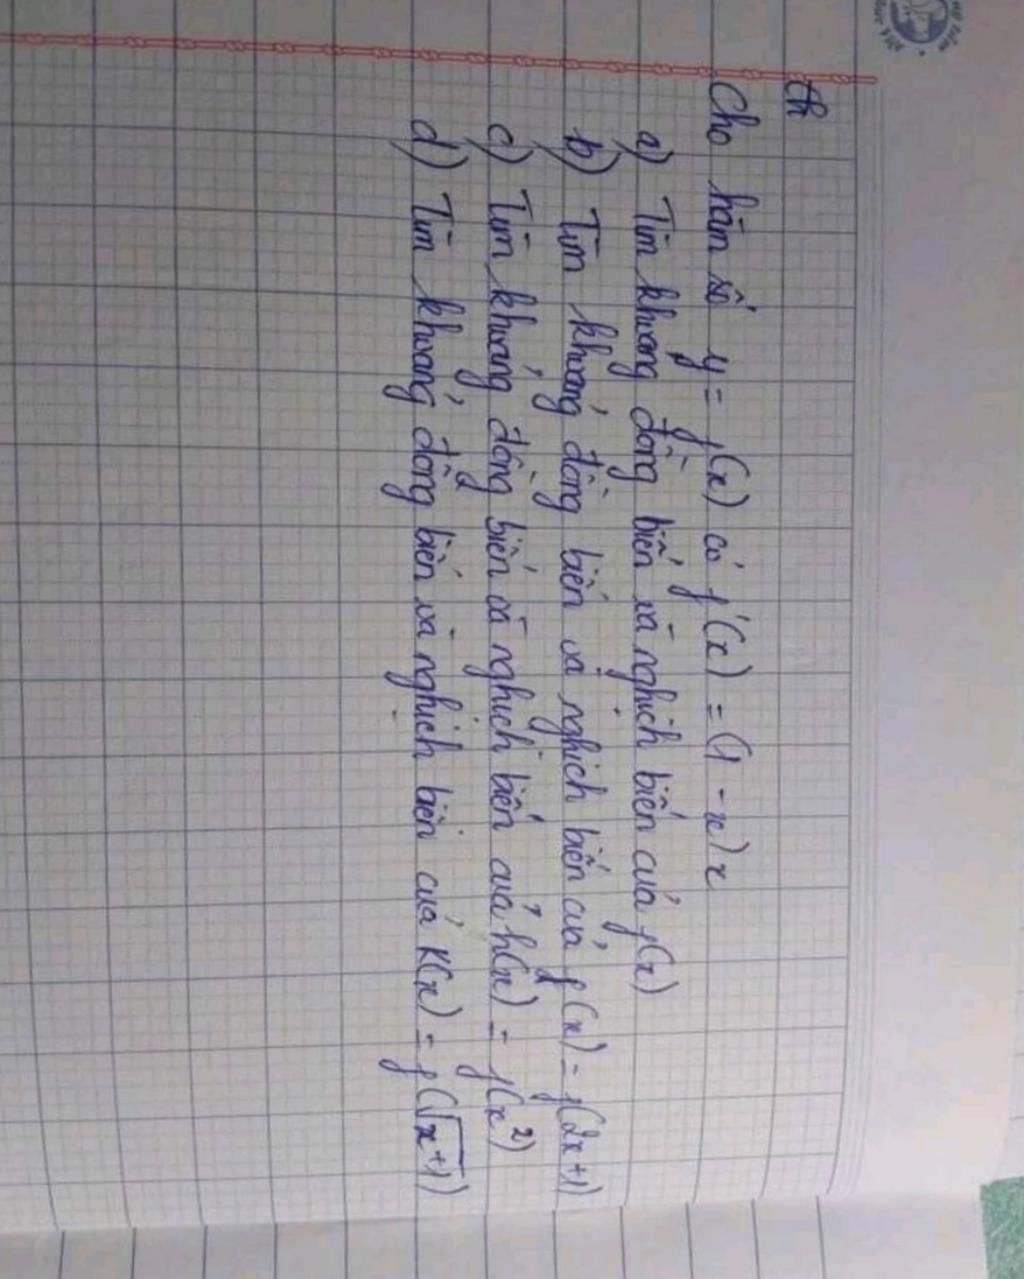 Cho hàm số y = f(x) có f'(x) = (1 - x)x
a) Tìm khoảng đồng biến và nghịch biến của f(x)
b) Tìm khoảng đồng biến và nghịch biến của g(x) = f(2x+1)
c) Tìm khoảng đồng biến và nghịch biến của h(x) = f(x²)
d) Tìm khoảng đồng biến và nghịch biến của K(x) = f(√(x+1))